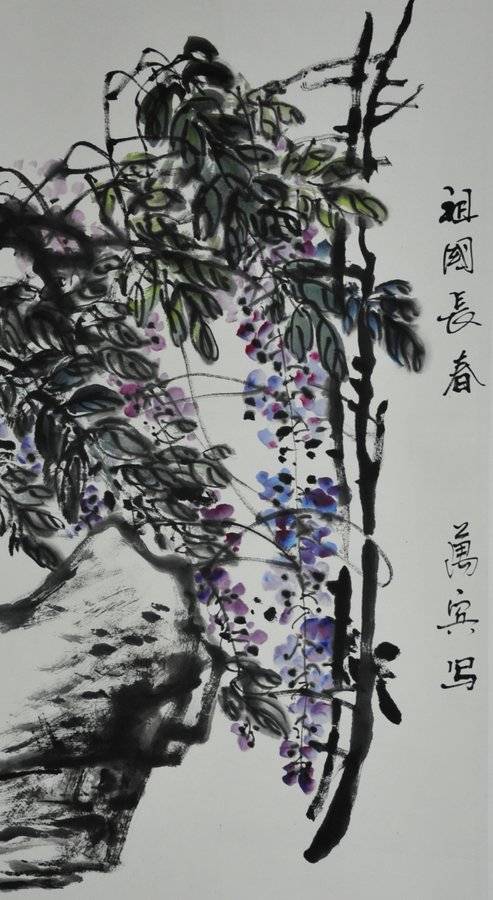 祖國長春
萬宾写